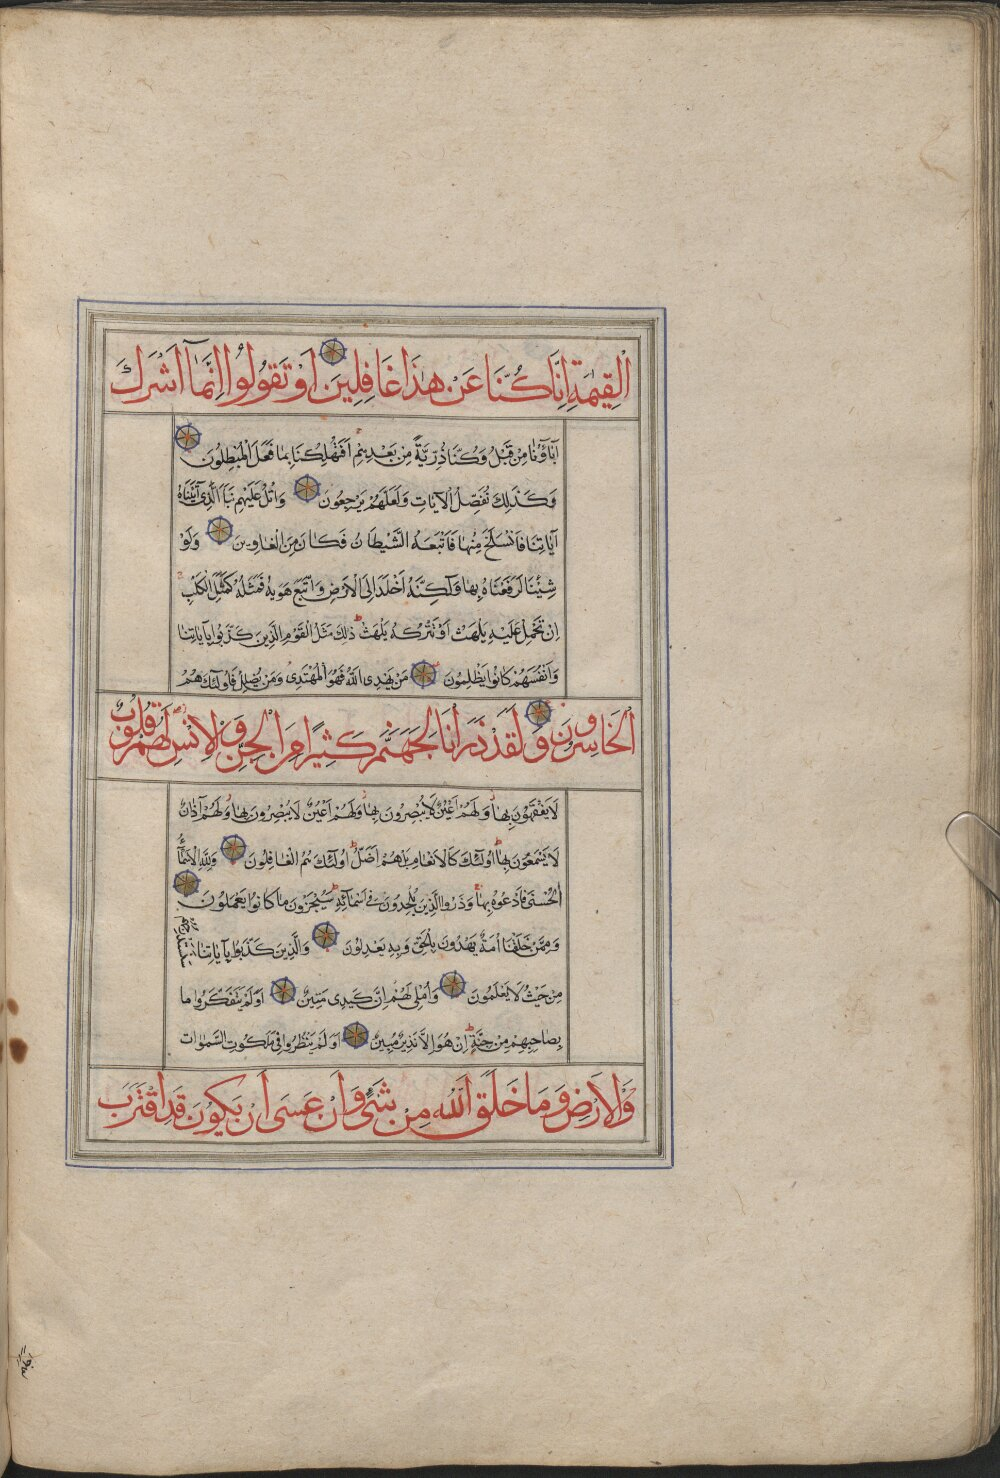 الْقِيٰمَةِ اِنَّا كُنَّا عَنْ هٰذَا غَافِلِينَ اَوْ تَقُولُوا اِنَّمَآ اَشْرَكَ
آبَآؤُنَا مِنْ قَبْلُ وَكُنَّا ذُرِّيَّةً مِنْ بَعْدِهِمْ اَفَتُهْلِكُنَا بِمَا فَعَلَ الْمُبْطِلُونَ
وَكَذٰلِكَ نُفَصِّلُ الْآيَاتِ وَلَعَلَّهُمْ يَرْجِعُونَ وَاتْلُ عَلَيْهِمْ نَبَاَ الَّذِى آتَيْنَاهُ
آيَاتِنَا فَانْسَلَخَ مِنْهَا فَاَتْبَعَهُ الشَّيْطَانُ فَكَانَ مِنَ الْغَاوِينَ وَلَوْ
شِئْنَا لَرَفَعْنَاهُ بِهَا وَلٰكِنَّهُ اَخْلَدَ اِلَى الْاَرْضِ وَاتَّبَعَ هَوٰيهُ فَمَثَلُهُ كَمَثَلِ الْكَلْبِ
اِنْ تَحْمِلْ عَلَيْهِ يَلْهَثْ اَوْ تَتْرُكْهُ يَلْهَثْ ذٰلِكَ مَثَلُ الْقَوْمِ الَّذِينَ كَذَّبُوا بِآيَاتِنَا
وَاَنْفُسَهُمْ كَانُوا يَظْلِمُونَ مَنْ يَهْدِى اللّٰهُ فَهُوَ الْمُهْتَدِى وَمَنْ يُضْلِلْ فَاُولٰئِكَ هُمُ
الْخَاسِرُونَ وَلَقَدْ ذَرَاْنَا لِجَهَنَّمَ كَثِيرًا مِنَ الْجِنِّ وَالْاِنْسِ لَهُمْ قُلُوبٌ
لَا يَفْقَهُونَ بِهَا وَلَهُمْ اَعْيُنٌ لَا يُبْصِرُونَ بِهَا وَلَهُمْ اَعْيُنٌ لَا يُبْصِرُونَ بِهَا وَلَهُمْ آذَانٌ
لَا يَسْمَعُونَ بِهَا اُولٰئِكَ كَالْاَنْعَامِ بَلْ هُمْ اَضَلُّ اُولٰئِكَ هُمُ الْغَافِلُونَ وَلِلّٰهِ الْاَسْمَآءُ
الْحُسْنٰى فَادْعُوهُ بِهَا وَذَرُوا الَّذِينَ يُلْحِدُونَ فِى اَسْمَآئِهِ سَيُجْزَوْنَ مَا كَانُوا يَعْمَلُونَ
وَمِمَّنْ خَلَقْنَا اُمَّةٌ يَهْدُونَ بِالْحَقِّ وَبِهِ يَعْدِلُونَ وَالَّذِينَ كَذَّبُوا بِآيَاتِنَا سَنَسْتَدْرِجُهُمْ
مِنْ حَيْثُ لَا يَعْلَمُونَ وَاُمْلِى لَهُمْ اِنَّ كَيْدِى مَتِينٌ اَوَلَمْ يَتَفَكَّرُوا مَا
بِصَاحِبِهِمْ مِنْ جِنَّةٍ اِنْ هُوَ اِلَّا نَذِيرٌ مُبِينٌ اَوَلَمْ يَنْظُرُوا فِى مَلَكُوتِ السَّمٰوَاتِ
وَالْاَرْضِ وَمَا خَلَقَ اللّٰهُ مِنْ شَىْءٍ وَاَنْ عَسٰى اَنْ يَكُونَ قَدِ اقْتَرَبَ